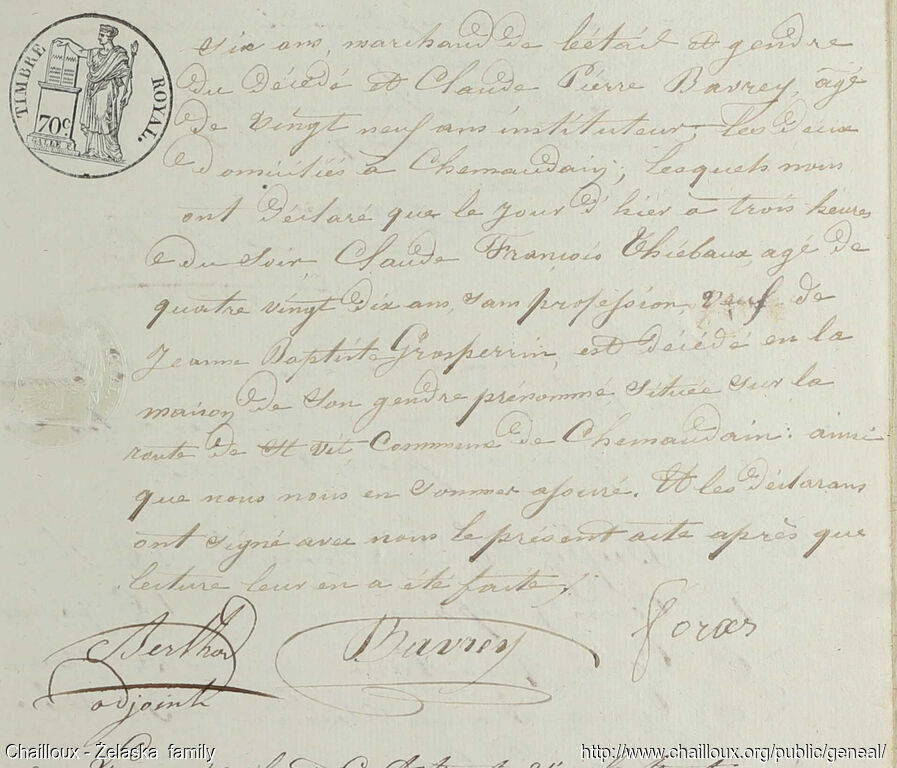 TIMBRE ROYAL.
70c.
six ans, marchand de bétail et gendre
du décédé et Claude Pierre Bavrey, agé
de vingt neuf ans instituteur, les deux
domiciliés à Chemaudain; lesquels nous
ont déclaré que le jour d'hier a trois heures
du soir Claude François Thiébaux, agé de
quatre vingt dix ans, sans profession, veuf de
Jeanne Baptiste Grosperrin, est décédé en la
maison de son gendre prénommé située sur la
route de St Vit Commune de Chemaudain: ainsi
que nous nous en sommes assuré. Et les déclarans
ont signé avec nous le présent acte après que
lecture leur en a été faite.
Bavrey
adjoint
Chailloux - Želaska family
http://www.chailloux.org/public/geneal/